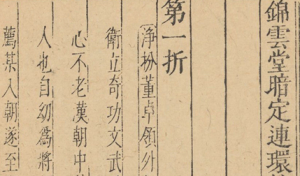 錦雲堂暗定連環
第一折
淨扮董卓領外
衛立奇功文武
心不老漢朝中
人也自幼為將
萬某入朝遂至